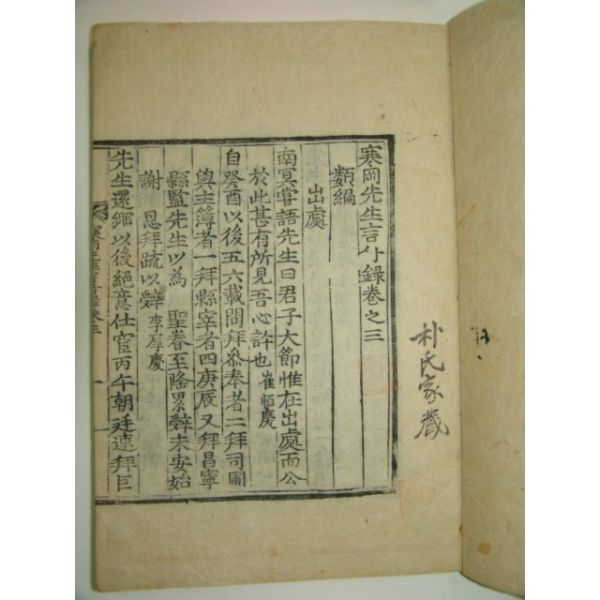 朴氏家藏
寒岡先生言行錄卷之三
類編
出處
南冥嘗語先生曰君子大節惟在出處而公
於此甚有所見吾心許也 崔恒慶
自癸酉以後五六載間拜叅奉者二拜司圃
與主簿者一拜縣宰者四庚辰又拜昌寧
縣監先生以為 聖眷至隆累辭未安始
謝 恩拜疏以辭 李厚慶
先生還鄕以後絕意仕宦丙午朝廷連拜巨